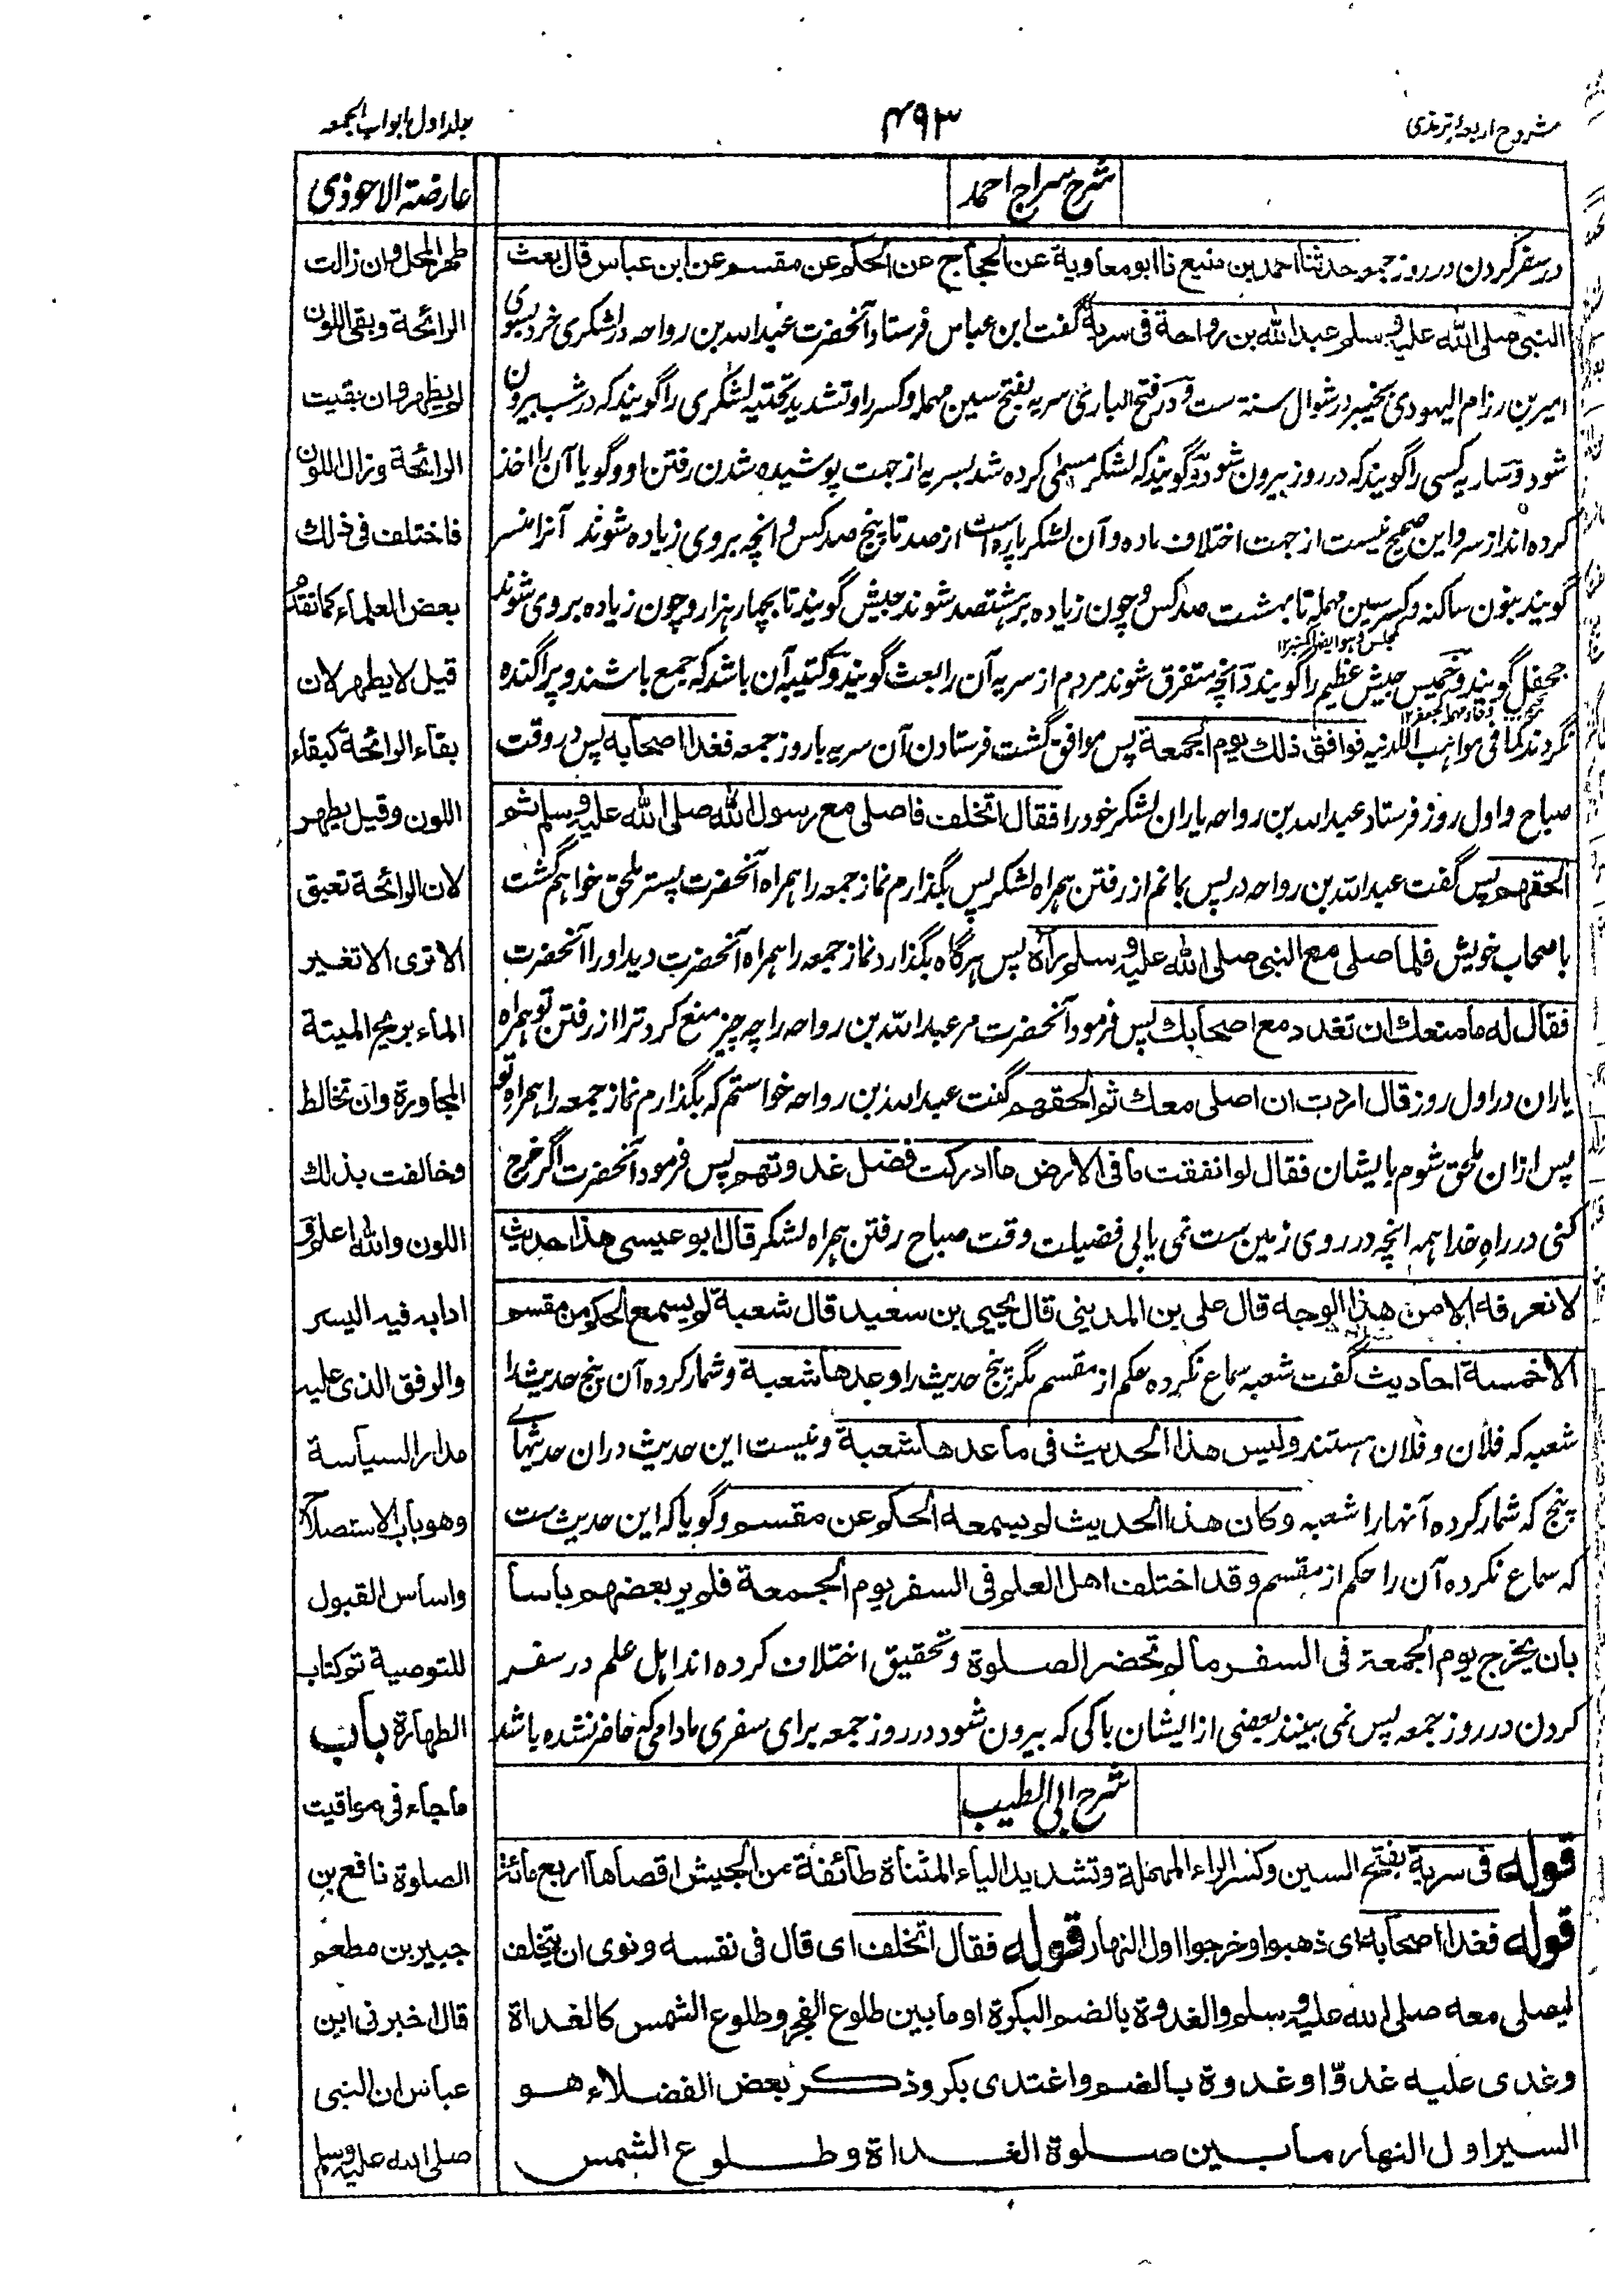 شروح اربعۂ ترمذی
۴۹۳
جلد اول ابواب الجمعہ
شرح سراج احمد
در سفر کردن در روز جمعہ حدثنا احمد بن منیع نا ابو معاویة عن الحجاج عن الحکم عن مقسم عن ابن عباس قال بعث
النبی صلی الله علیه وسلم عبد الله بن رواحة فی سریة گفت ابن عباس فرستاد آنحضرت عبد الله بن رواحہ در لشکری خرد بسوی
امیر بن رزام الیهودی بخیبر در شوال سنة ست و در فتح الباری سریہ بفتح سین مهملہ و کسر را و تشدید تحتیہ لشکری را گویند کہ در شب بیرون
شود و ساریہ کسی را گویند کہ در روز بیرون شود و گویند کہ لشکر مسمی کرده شد بسریہ از جهت پوشیده شدن رفتن او و گویا آن را اخذ
کرده اند از سر و این صحیح نیست از جهت اختلاف ماده و آن لشکر پاره است از صد تا پنج صد کس و انچہ بروی زیاده شوند آنرا منسر
گویند بنون ساکنہ و کسر سین مهملہ تا بهشت صد کس و چون زیاده بر هشتصد شوند جیش گویند تا بچهار هزار و چون زیاده بروی شوند
جحفل گویند و خمیس جیش عظیم را گویند و آنچہ متفرق شوند مردم از سریہ آن را بعث گویند و کتیبہ آن باشد کہ جمع باشند و پراگنده
نگردند کما فی مواهب اللدنیہ فوافق ذلك یوم الجمعة پس موافق گشت فرستادن آن سریہ با روز جمعہ فغدا اصحابه پس در وقت
صباح و اول روز فرستاد عبد الله بن رواحہ یاران لشکر خود را فقال اتخلف فاصلی مع رسول الله صلی الله علیه وسلم ثم
الحقهم پس گفت عبد الله بن رواحہ در پس بمانم از رفتن همراه لشکر پس بگذارم نماز جمعہ را همراه آنحضرت پستر ملحق خواهم گشت
با صحاب خویش فلما صلی مع النبی صلی الله علیه وسلم رآه پس هرگاه بگذارد نماز جمعہ را همراه آنحضرت دید او را آنحضرت
فقال له ما منعك ان تغدو مع اصحابك پس فرمود آنحضرت مر عبد الله بن رواحہ را چہ چیز منع کرد ترا از رفتن تو همراه
یاران در اول روز قال اردت ان اصلی معك ثم الحقهم گفت عبد الله بن رواحہ خواستم کہ بگذارم نماز جمعہ را همراه تو
پس از ان ملحق شوم بایشان فقال لو انفقت ما فی الارض ما ادرکت فضل غدوتهم پس فرمود آنحضرت اگر خرج
کنی در راه خدا همہ انچہ در روی زمین ست نمی یابی فضیلت وقت صباح رفتن همراه لشکر قال ابو عیسی هذا حدیث
لا نعرفه الا من هذا الوجه قال علی بن المدینی قال یحیی بن سعید قال شعبة لم یسمع الحکم من مقسم
الا خمسة احادیث گفت شعبہ سماع نکرده حکم از مقسم مگر پنج حدیث را وعدها شعبة و شمار کرده آن پنج حدیث را
شعبہ کہ فلان و فلان هستند ولیس هذا الحدیث فی ما عدها شعبة و نیست این حدیث دران حدیثهائے
پنج کہ شمار کرده آنها را شعبہ وکان هذا الحدیث لم یسمعه الحکم عن مقسم و گویا کہ این حدیث ست
کہ سماع نکرده آن را حکم از مقسم وقد اختلف اهل العلم فی السفر یوم الجمعة فلم یر بعضهم باسا
بان یخرج یوم الجمعة فی السفر ما لم تحضر الصلوة و تحقیق اختلاف کرده اند اهل علم در سفر
کردن در روز جمعہ پس نمی بینند بعضی از ایشان باکی کہ بیرون شود در روز جمعہ برای سفری مادامی کہ حاضر نشده باشد
شرح ابی الطیب
قوله فی سریة بفتح السین وکسر الراء المهملة وتشدید الیاء المثناة طائفة من الجیش اقصاها اربع مائة
قوله فغدا اصحابه ای ذهبوا وخرجوا اول النهار قوله فقال اتخلف ای قال فی نفسه ونوی ان یتخلف
لیصلی معه صلی الله علیه وسلم والغدوة بالضم البکرة او ما بین طلوع الفجر وطلوع الشمس کالغداة
وغدی علیه غدوّا وغدوة بالضم واغتدی بکر وذکر بعض الفضلاء هو
السیر اول النهار ما بین صلوة الغداة وطلوع الشمس
عارضة الاحوذی
طهر المحل وان زالت
الرائحة وبقی اللون
لم یطهر وان بقیت
الرائحة وزال اللون
فاختلف فی ذلك
بعض العلماء کما تقدم
قیل لا یطهر لان
بقاء الرائحة کبقاء
اللون وقیل یطهر
لان الرائحة تعبق
الا تری الا تغیر
الماء بریح المیتة
المجاورة وان تخالط
وخالفت بذلك
اللون والله اعلم و
ادابه فیه الیسر
والرفق الذی علیه
مدار السیاسة
وهو باب الاستصلاح
واساس القبول
للتوصیة تم کتاب
الطهارة باب
ما جاء فی مواقیت
الصلوة نافع بن
جبیر بن مطعم
قال اخبرنی ابن
عباس ان النبی
صلی الله علیه وسلم